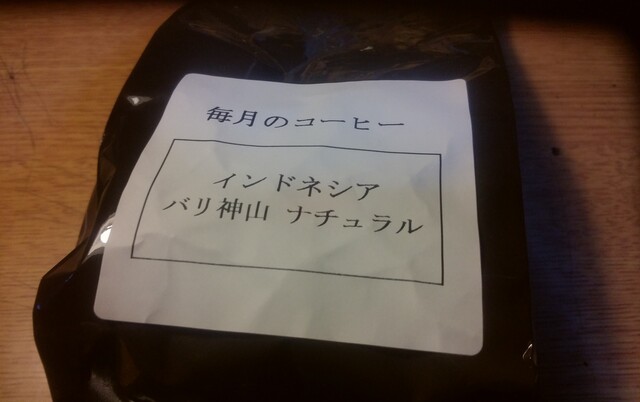 毎月のコーヒー
インドネシア
バリ神山 ナチュラル